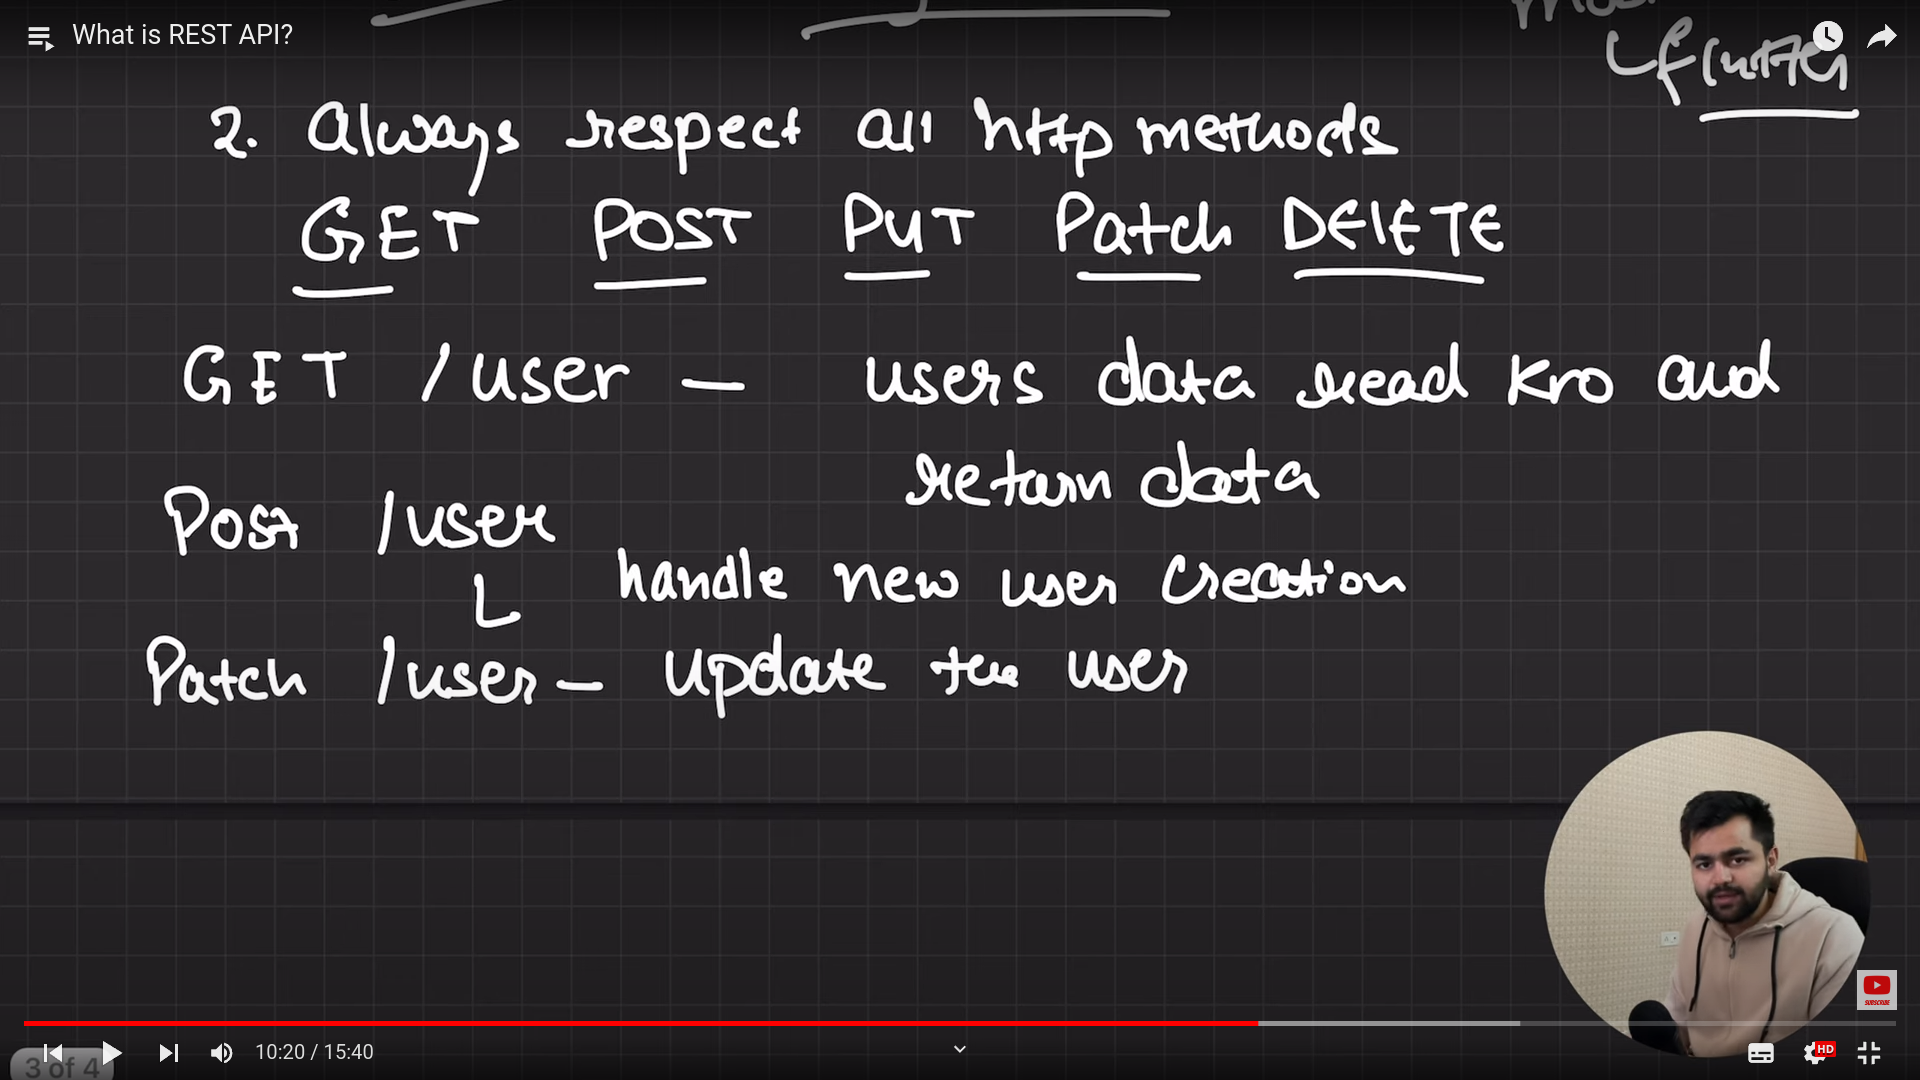 What is REST API?
flutter
2. Always respect all http methods
GET POST PUT Patch DELETE
GET /user — users data read kro and
return data
Post /user
handle new user creation
Patch /user – update the user
SUBSCRIBE
10:20 / 15:40
HD
3 of 4